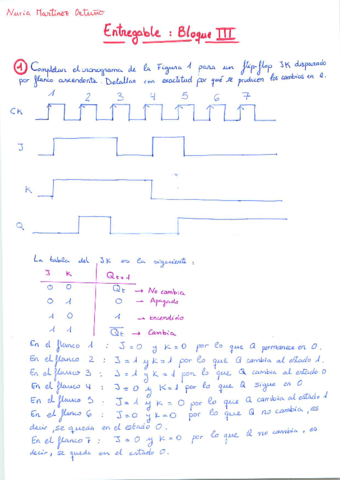 Nuria Martínez Ortuño
Entregable : Bloque III
① Completar el cronograma de la Figura 1 para un flip-flop JK disparado
por flanco ascendente. Detallar con exactitud por qué se producen los cambios en Q.
1 2 3 4 5 6 7
CK
J
K
Q
La tabla del JK es la siguiente :
J K Qt+1
0 0 Qt → No cambia
0 1 0 → Apagado
1 0 1 → encendido
1 1 Qt → Cambia
En el flanco 1 : J = 0 y K = 0 por lo que Q permanece en 0.
En el flanco 2 : J = 1 y K = 1 por lo que Q cambia al estado 1.
En el flanco 3 : J = 1 y K = 1 por lo que Q cambia al estado 0
En el flanco 4 : J = 0 y K = 1 por lo que Q sigue en 0
En el flanco 5 . J = 1 y K = 0 por lo que Q cambia al estado 1
En el flanco 6 : J = 0 y K = 0 por lo que Q no cambia, es
decir, se queda en el estado 0.
En el flanco 7 : J = 0 y K = 0 por lo que Q no cambia, es
decir, se queda en el estado 0.